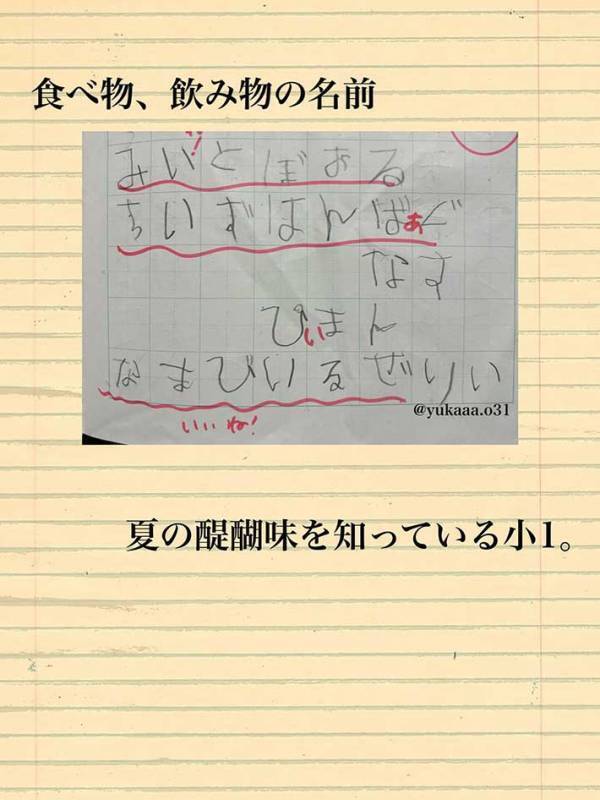 食べ物、飲み物の名前
みいとぼおる
ちいずはんばあぐ
なす
ぴいまん
なまびいるぜりい
いいね!
@yukaaa.o31
夏の醍醐味を知っている小1。